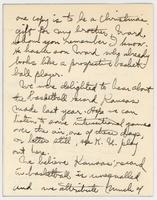 one copy is to be a Christmas
gift for my brother, Ward,
whom you remember, I know.
He has a son Ward who already
looks like a prospective basket-
ball player.
We were delighted to hear about
the basketball record Kansas
made last year. Hope we can
listen to some international games
over the air, one of these days,
or better still, see K. U. play
out here.
We believe Kansas' record
in basketball is unequalled
and we attribute much of